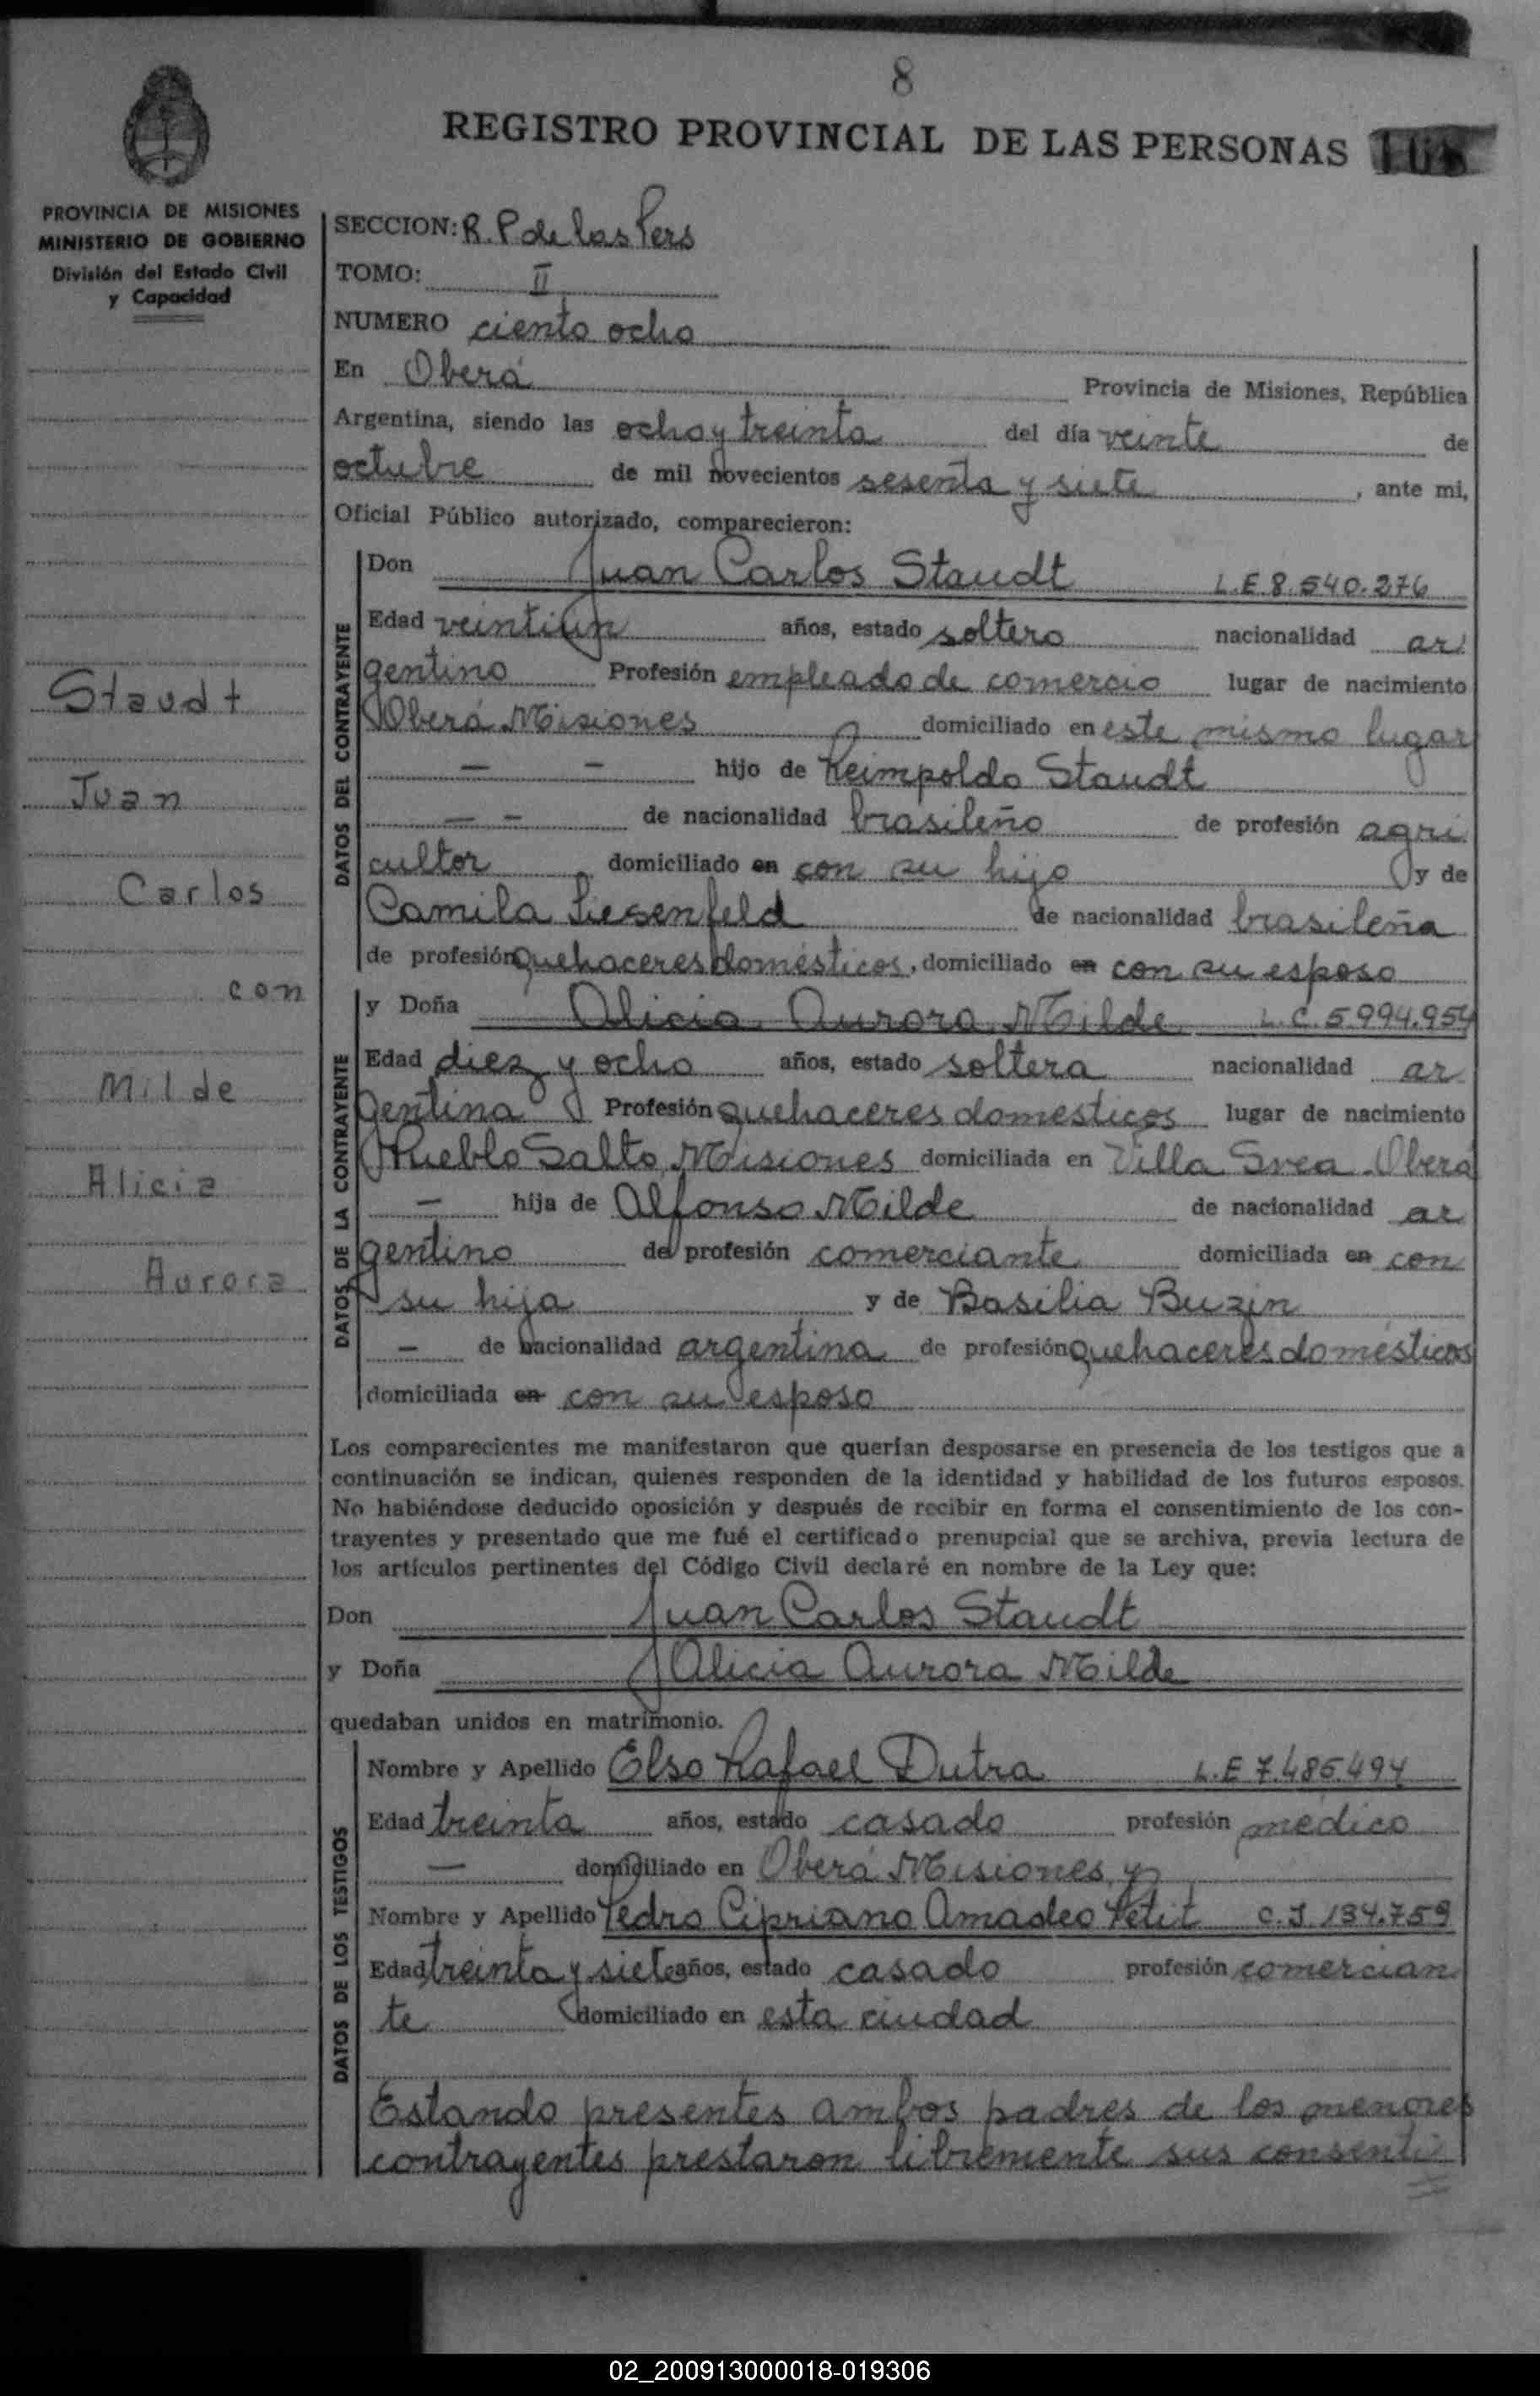 8
REGISTRO PROVINCIAL DE LAS PERSONAS
PROVINCIA DE MISIONES
MINISTERIO DE GOBIERNO
División del Estado Civil
y Capacidad
Staudt
Juan
Carlos
con
Milde
Alicia
Aurora
SECCION: R. P de las Pers
TOMO: II
NUMERO ciento ocho
En Oberá Provincia de Misiones, República
Argentina, siendo las ocho y treinta del día veinte de
octubre de mil novecientos sesenta y siete, ante mi,
Oficial Público autorizado, comparecieron:
DATOS DEL CONTRAYENTE
Don Juan Carlos Staudt L.E. 8.540.276
Edad veintiun años, estado soltero nacionalidad ar
gentino Profesión empleado de comercio lugar de nacimiento
Oberá Misiones domiciliado en este mismo lugar
— — hijo de Reimpoldo Staudt
— — de nacionalidad brasileño de profesión agri
cultor domiciliado en con su hijo y de
Camila Liesenfeld de nacionalidad brasileña
de profesión quehaceres domésticos, domiciliado en con su esposo
DATOS DE LA CONTRAYENTE
y Doña Alicia Aurora Milde L.C. 5.994.954
Edad diez y ocho años, estado soltera nacionalidad ar
gentina Profesión quehaceres domésticos lugar de nacimiento
Pueblo Salto, Misiones domiciliada en Villa Svea Oberá
— hija de Alfonso Milde de nacionalidad ar
gentino de profesión comerciante domiciliada en con
su hija y de Basilia Buzin
— de nacionalidad argentina de profesión quehaceres domésticos
domiciliada en con su esposo
Los comparecientes me manifestaron que querían desposarse en presencia de los testigos que a
continuación se indican, quienes responden de la identidad y habilidad de los futuros esposos.
No habiéndose deducido oposición y después de recibir en forma el consentimiento de los con-
trayentes y presentado que me fué el certificado prenupcial que se archiva, previa lectura de
los artículos pertinentes del Código Civil declaré en nombre de la Ley que:
Don Juan Carlos Staudt
y Doña Alicia Aurora Milde
quedaban unidos en matrimonio.
DATOS DE LOS TESTIGOS
Nombre y Apellido Elso Rafael Dutra L.E 7.485.494
Edad treinta años, estado casado profesión médico
— domiciliado en Oberá Misiones, y
Nombre y Apellido Pedro Cipriano Amadeo Petit C.I. 134.759
Edad treinta y siete años, estado casado profesión comercian
te domiciliado en esta ciudad
Estando presentes ambos padres de los menores
contrayentes prestaron libremente sus consenti
02_200913000018-019306